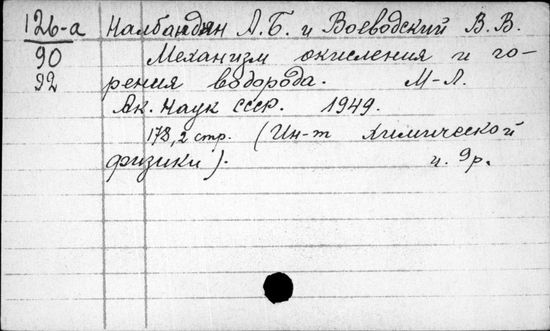 126-а Налбандян А.Б. и Воеводский В.В.
90 Механизм окисления и го-
92 рения водорода. М-Л.
Ак. Наук СССР. 1949.
178,2 стр. (Ин-т химической
физики). ц. 9р.